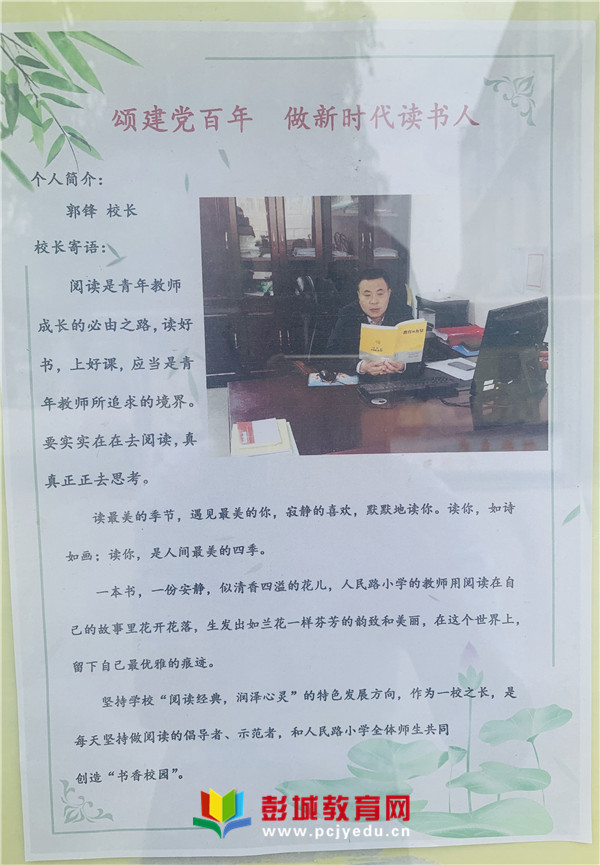 颂建党百年 做新时代读书人
个人简介：
郭锋 校长
校长寄语：
阅读是青年教师
成长的必由之路，读好
书，上好课，应当是青
年教师所追求的境界。
要实实在在去阅读，真
真正正去思考。
读最美的季节，遇见最美的你，寂静的喜欢，默默地读你。读你，如诗
如画；读你，是人间最美的四季。
一本书，一份安静，似清香四溢的花儿，人民路小学的教师用阅读在自
己的故事里花开花落，生发出如兰花一样芬芳的韵致和美丽，在这个世界上，
留下自己最优雅的痕迹。
坚持学校“阅读经典，润泽心灵”的特色发展方向，作为一校之长，是
每天坚持做阅读的倡导者、示范者，和人民路小学全体师生共同
创造“书香校园”。
彭城教育网
www.pcjyedu.cn